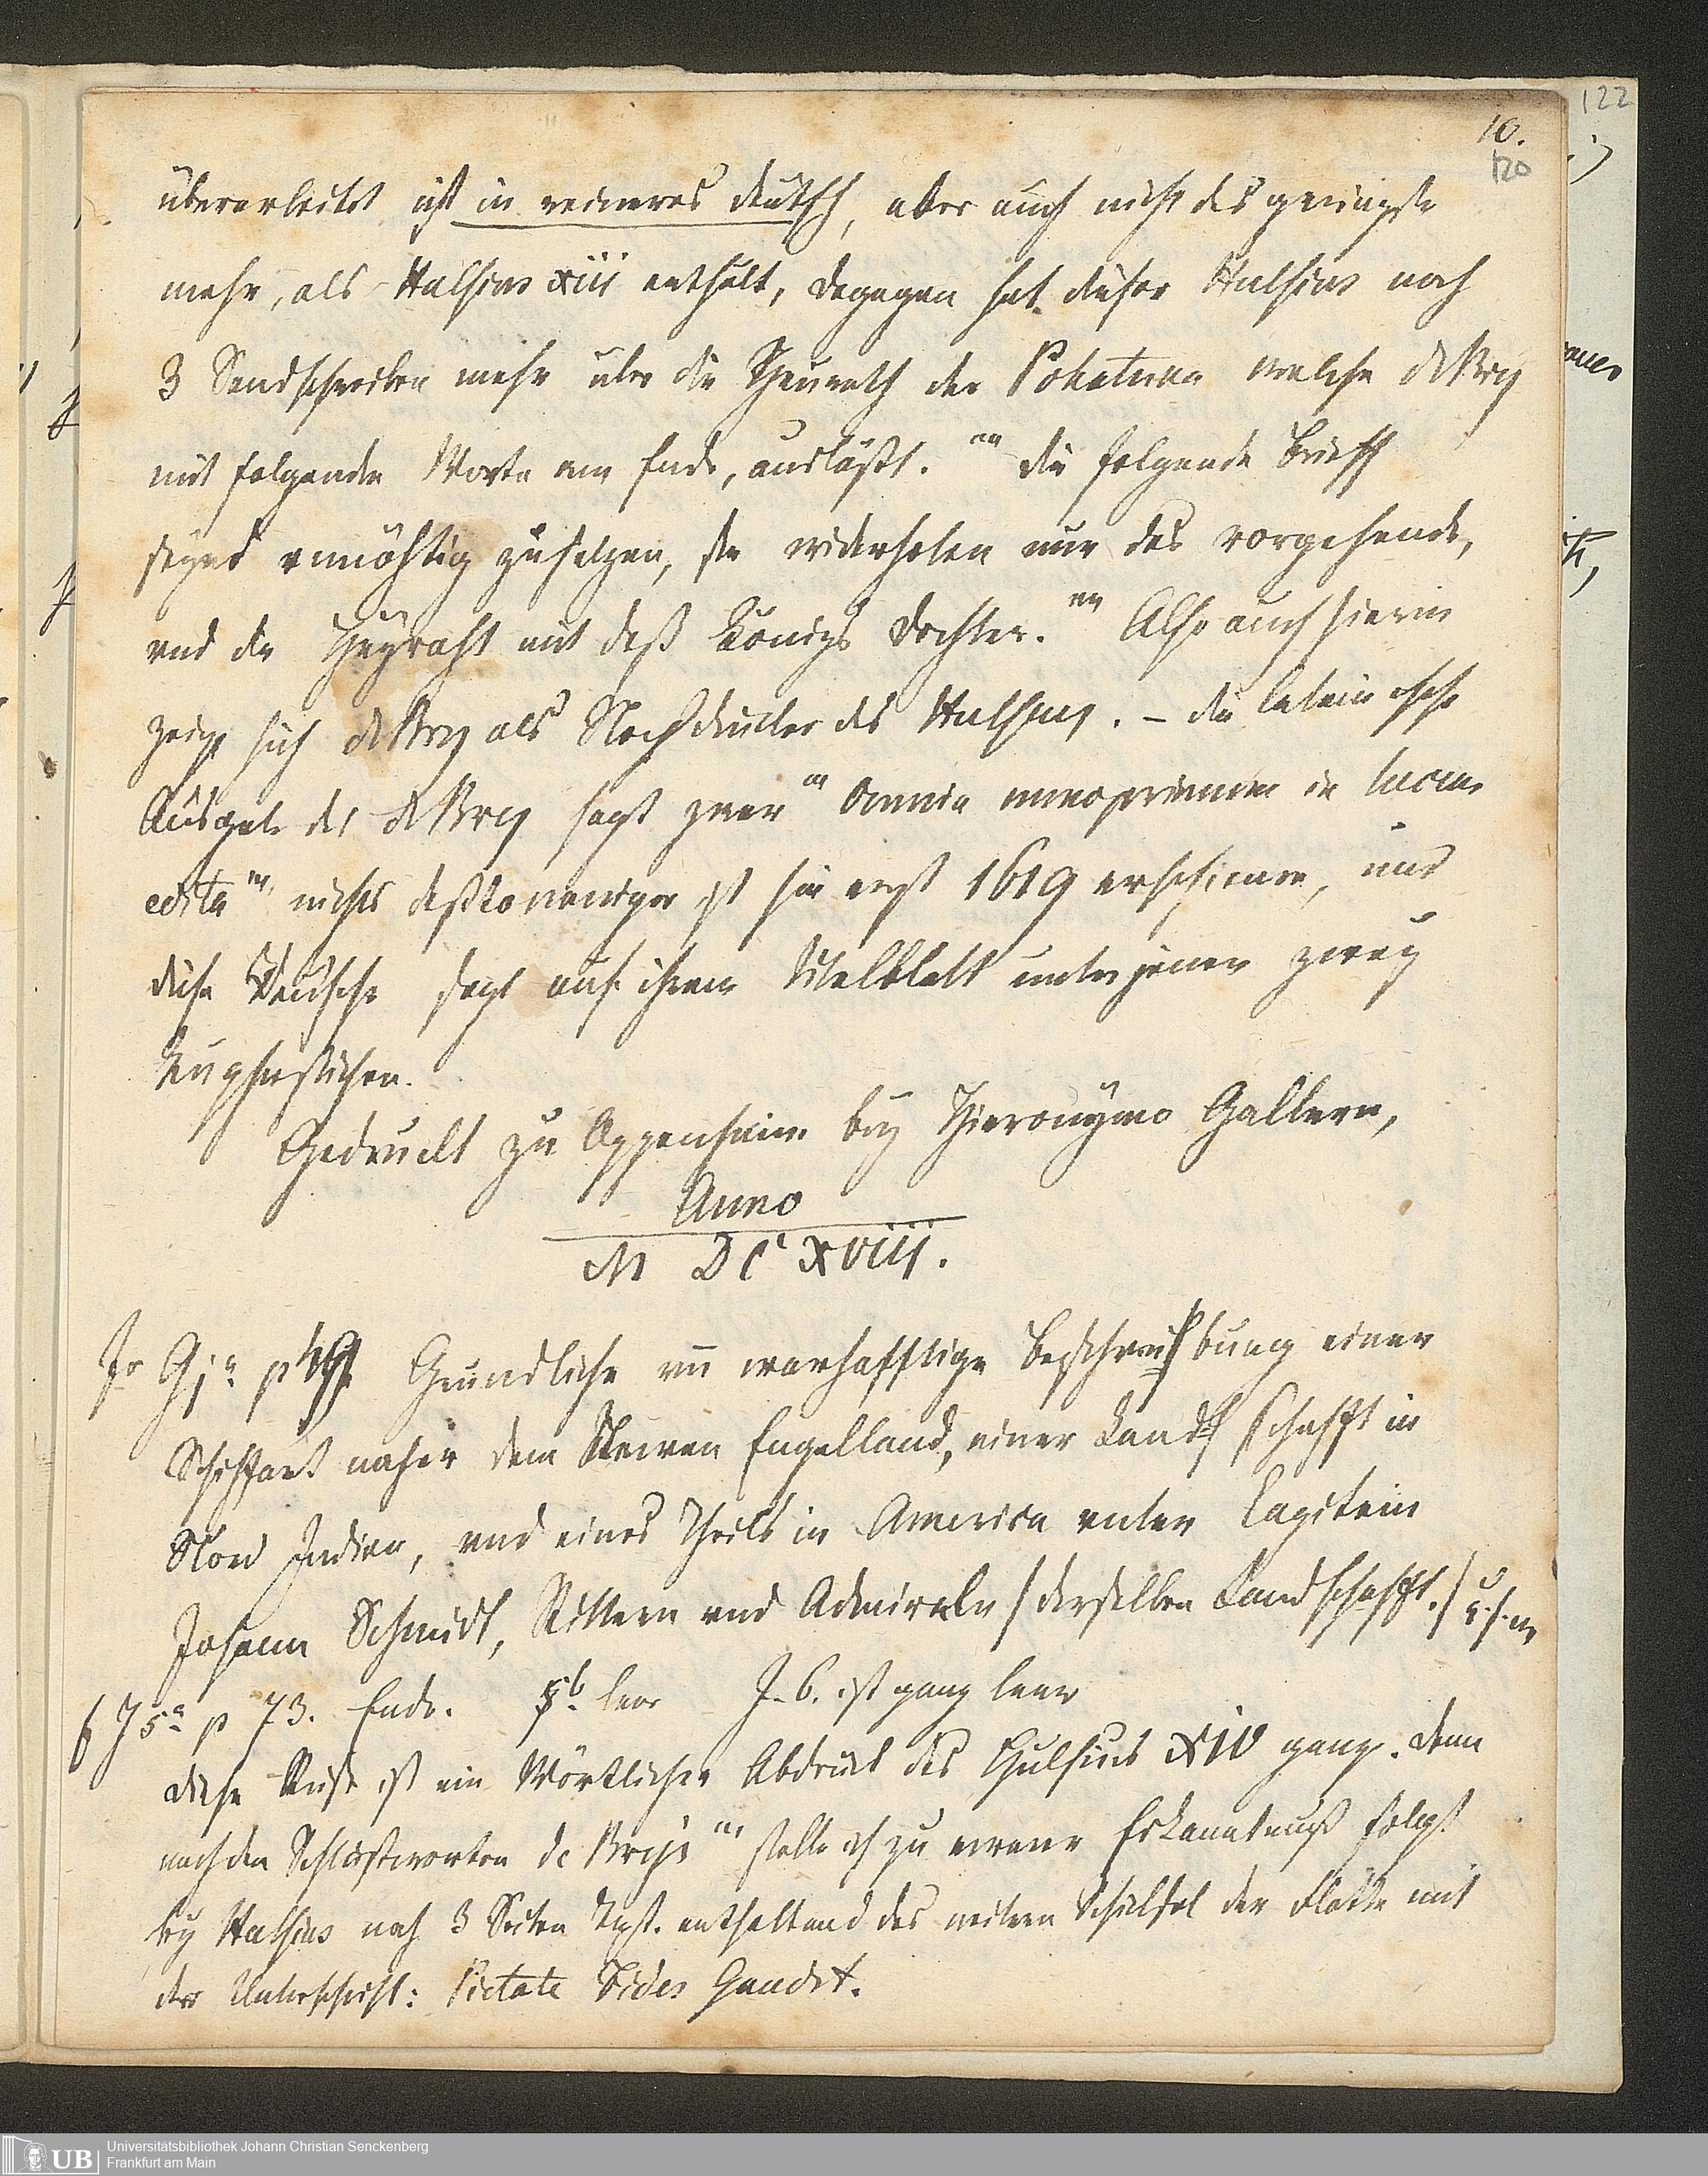 122
10.
120
überarbeitet ist in reineres deutsch, aber auch nicht das geringste
mehr, als Hulsius xiii enthält, dagegen hat dieser Hulsius noch
3 Sendschreiben mehr über die Heurath der Pokatuna welche de Bry
mit folgenden Worten am Ende, ausläßt. "" die folgende Brieff
seynd vnnöhtig zusetzen, sie widerholen nur das vorgehende,
vnd die Heyraht mit deß Königs Dochter."" Also auch hierin
zeigt sich de Bry als Nachdrucker des Hulsius. – die lateinische
Ausgabe des de Bry sagt zwar "" Omnia nunc primum in lucem
edita "", nichts destoweniger ist sie erst 1619 erschienen, und
diese Deutsche sagt auf ihrem Titelblatt unter jenen zwey
Kupferstichen.
Gedruckt zu Oppenheim bey Hieronymo Gallern,
Anno
M DC XVIII.
Gj a p Gründliche vn warhafftige Beschreibung einer
Schiffart naher dem Newen Engelland, einer Landtschafft in
Nord Indien, vnd eines Theils in America vnter Capitein
Johann Schmidt, Rittern vnd Admiraln / derselben Landschafft. / u.s.w.
J 5 a p 73. Ende. 5 b leer J. 6. ist ganz leer
diese Reise ist ein Wörtlicher Abdruck des Hulsius XIV ganz. denn
nach den Schlußworten de Bry's "" stelle ich zu ewerer Erkanntnuß folgt
bey Hulsius noch 3 Seiten Text. enthaltend das weitere Schicksal der Flotte mit
der Unterschrift: Pietate Fides Gaudet.
UB
Universitätsbibliothek Johann Christian Senckenberg
Frankfurt am Main